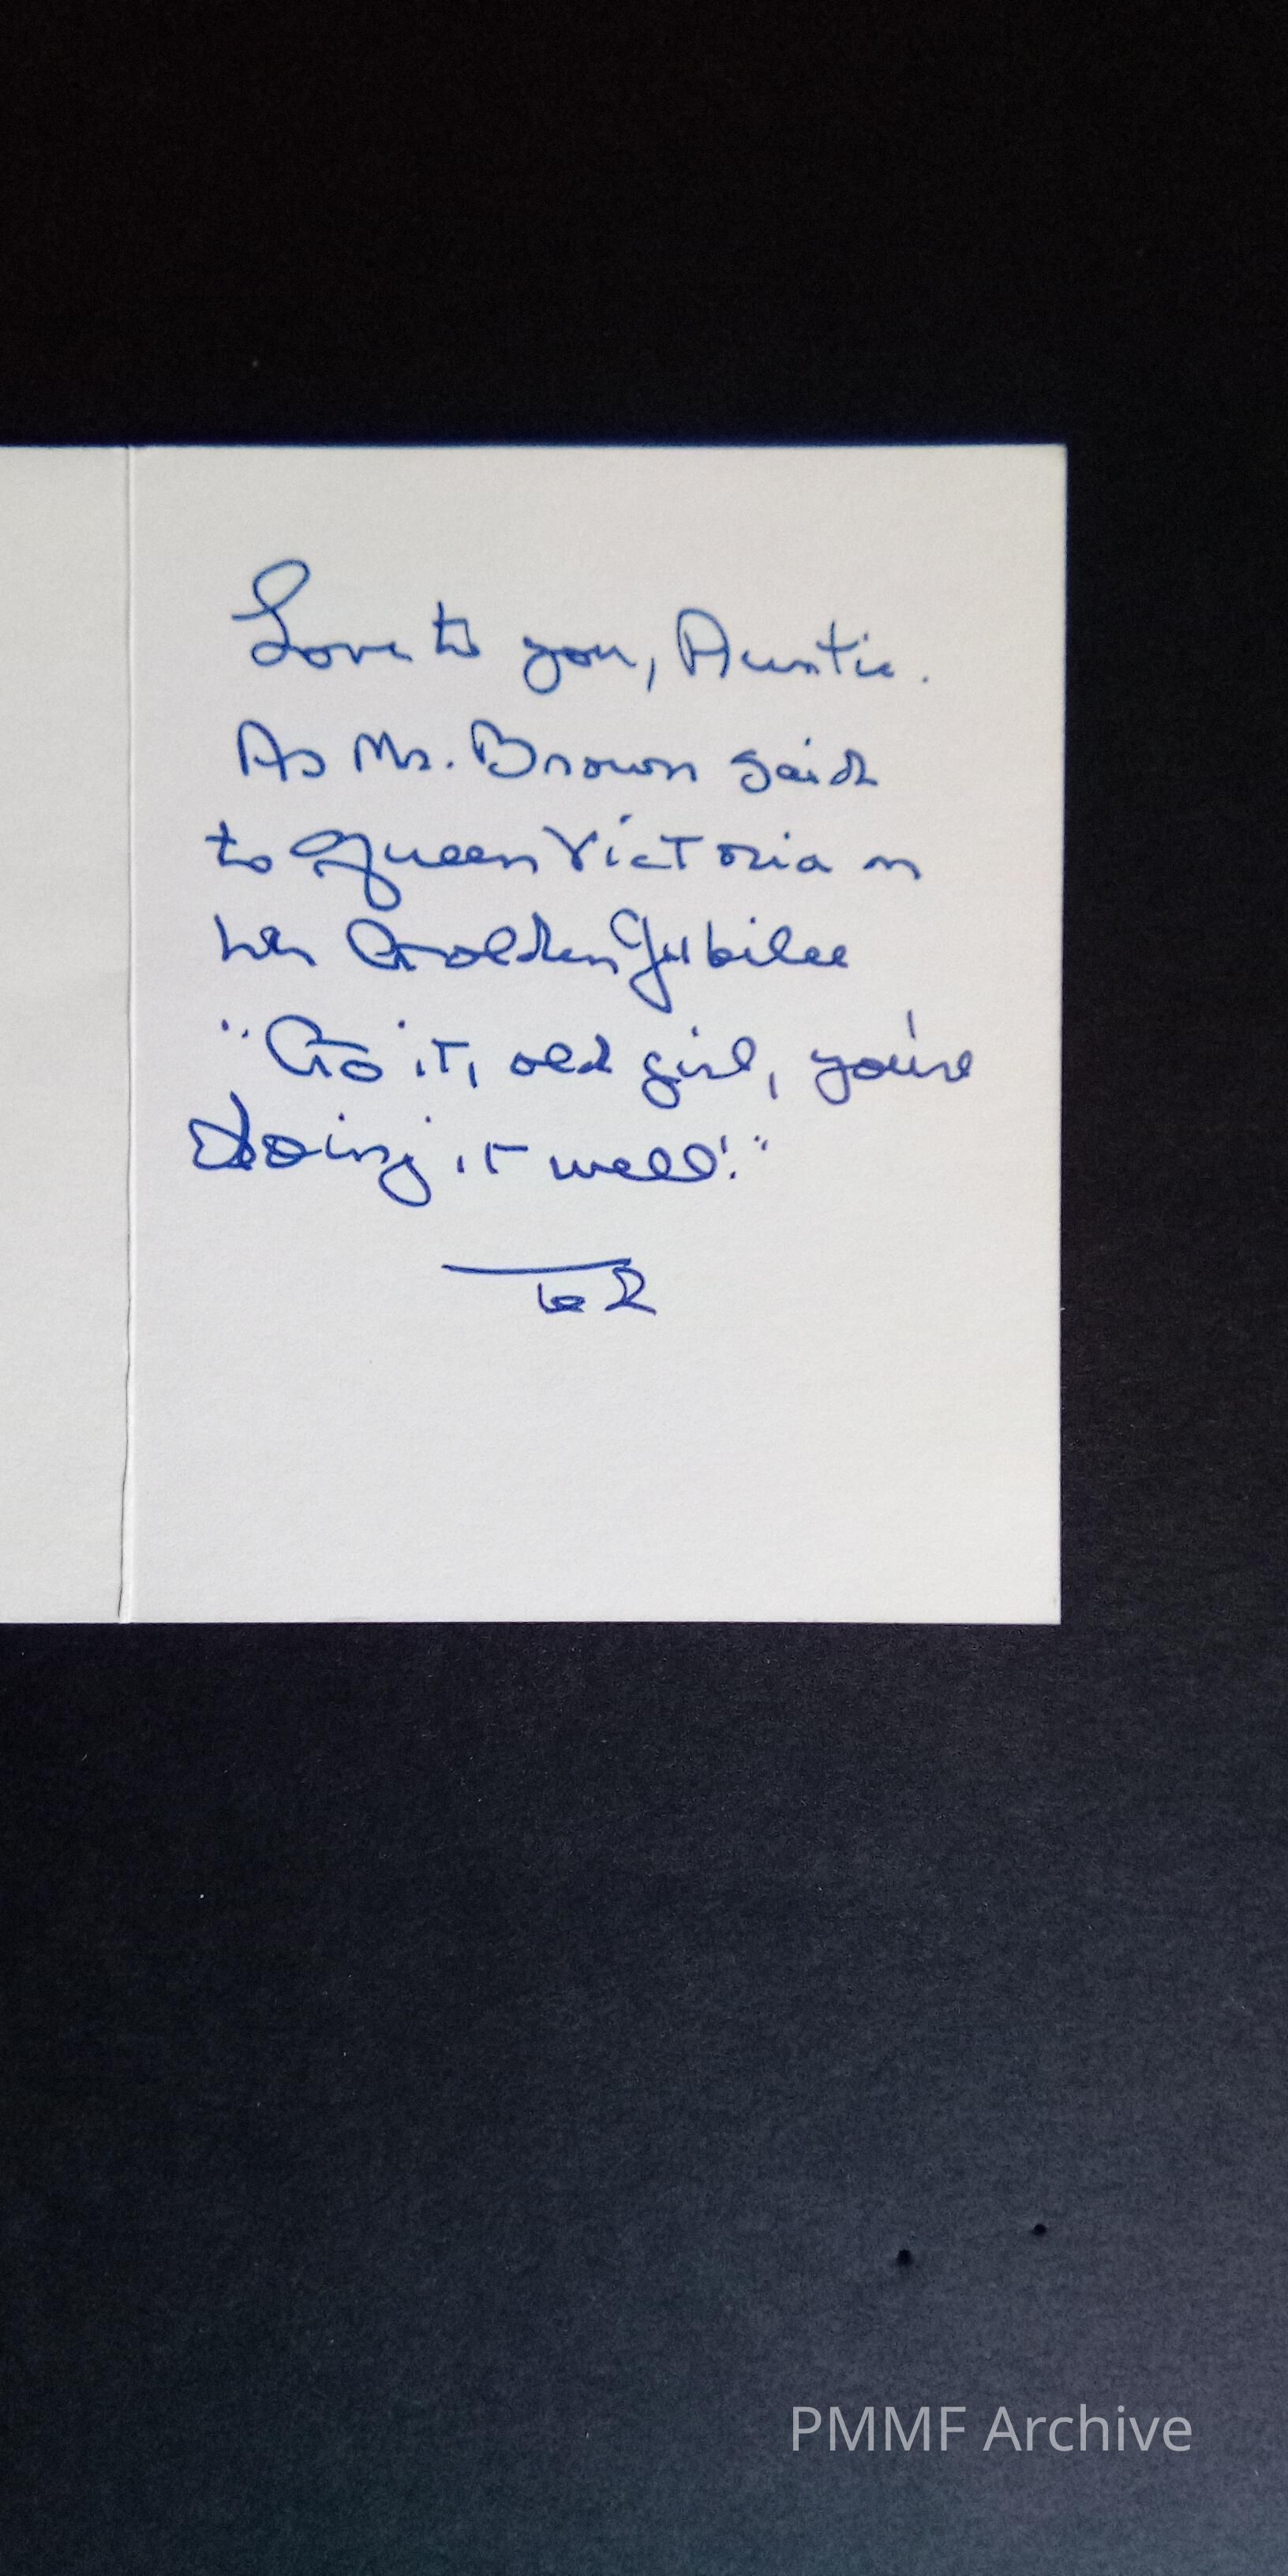 Love to you, Auntie.
As Mr. Brown said
to Queen Victoria on
her Golden Jubilee
"Go it, old girl, you're
doing it well!"
Ted
PMMF Archive